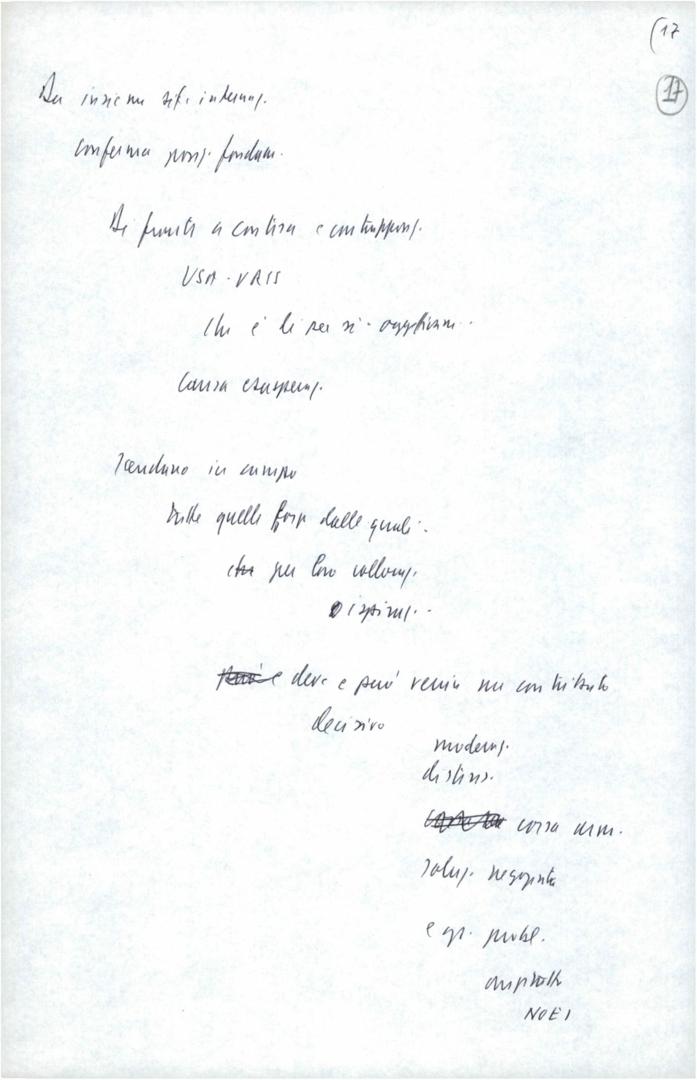 (17
17
Da insieme sit. internaz.
conferma posiz. fondam.
Di fronte a contrasti e contrappos.
USA-URSS
Che è li per sé - oggettivam..
causa esasperaz.
Scendano in campo
tutte quelle forze dalle quali.
per loro collocaz.
ispiraz..
e deve e può venire un contributo
decisivo
moderaz.
distens.
corsa arm.
soluz. negoziata
e gr. probl.
NOEI